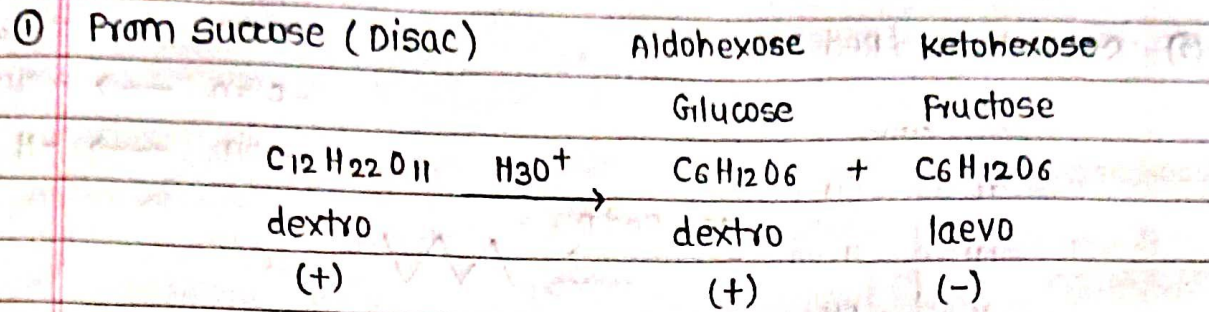 ① From sucrose (Disac) Aldohexose ketohexose
Glucose Fructose
C12H22O11 H3O+ → C6H12O6 + C6H12O6
dextro dextro laevo
(+) (+) (-)